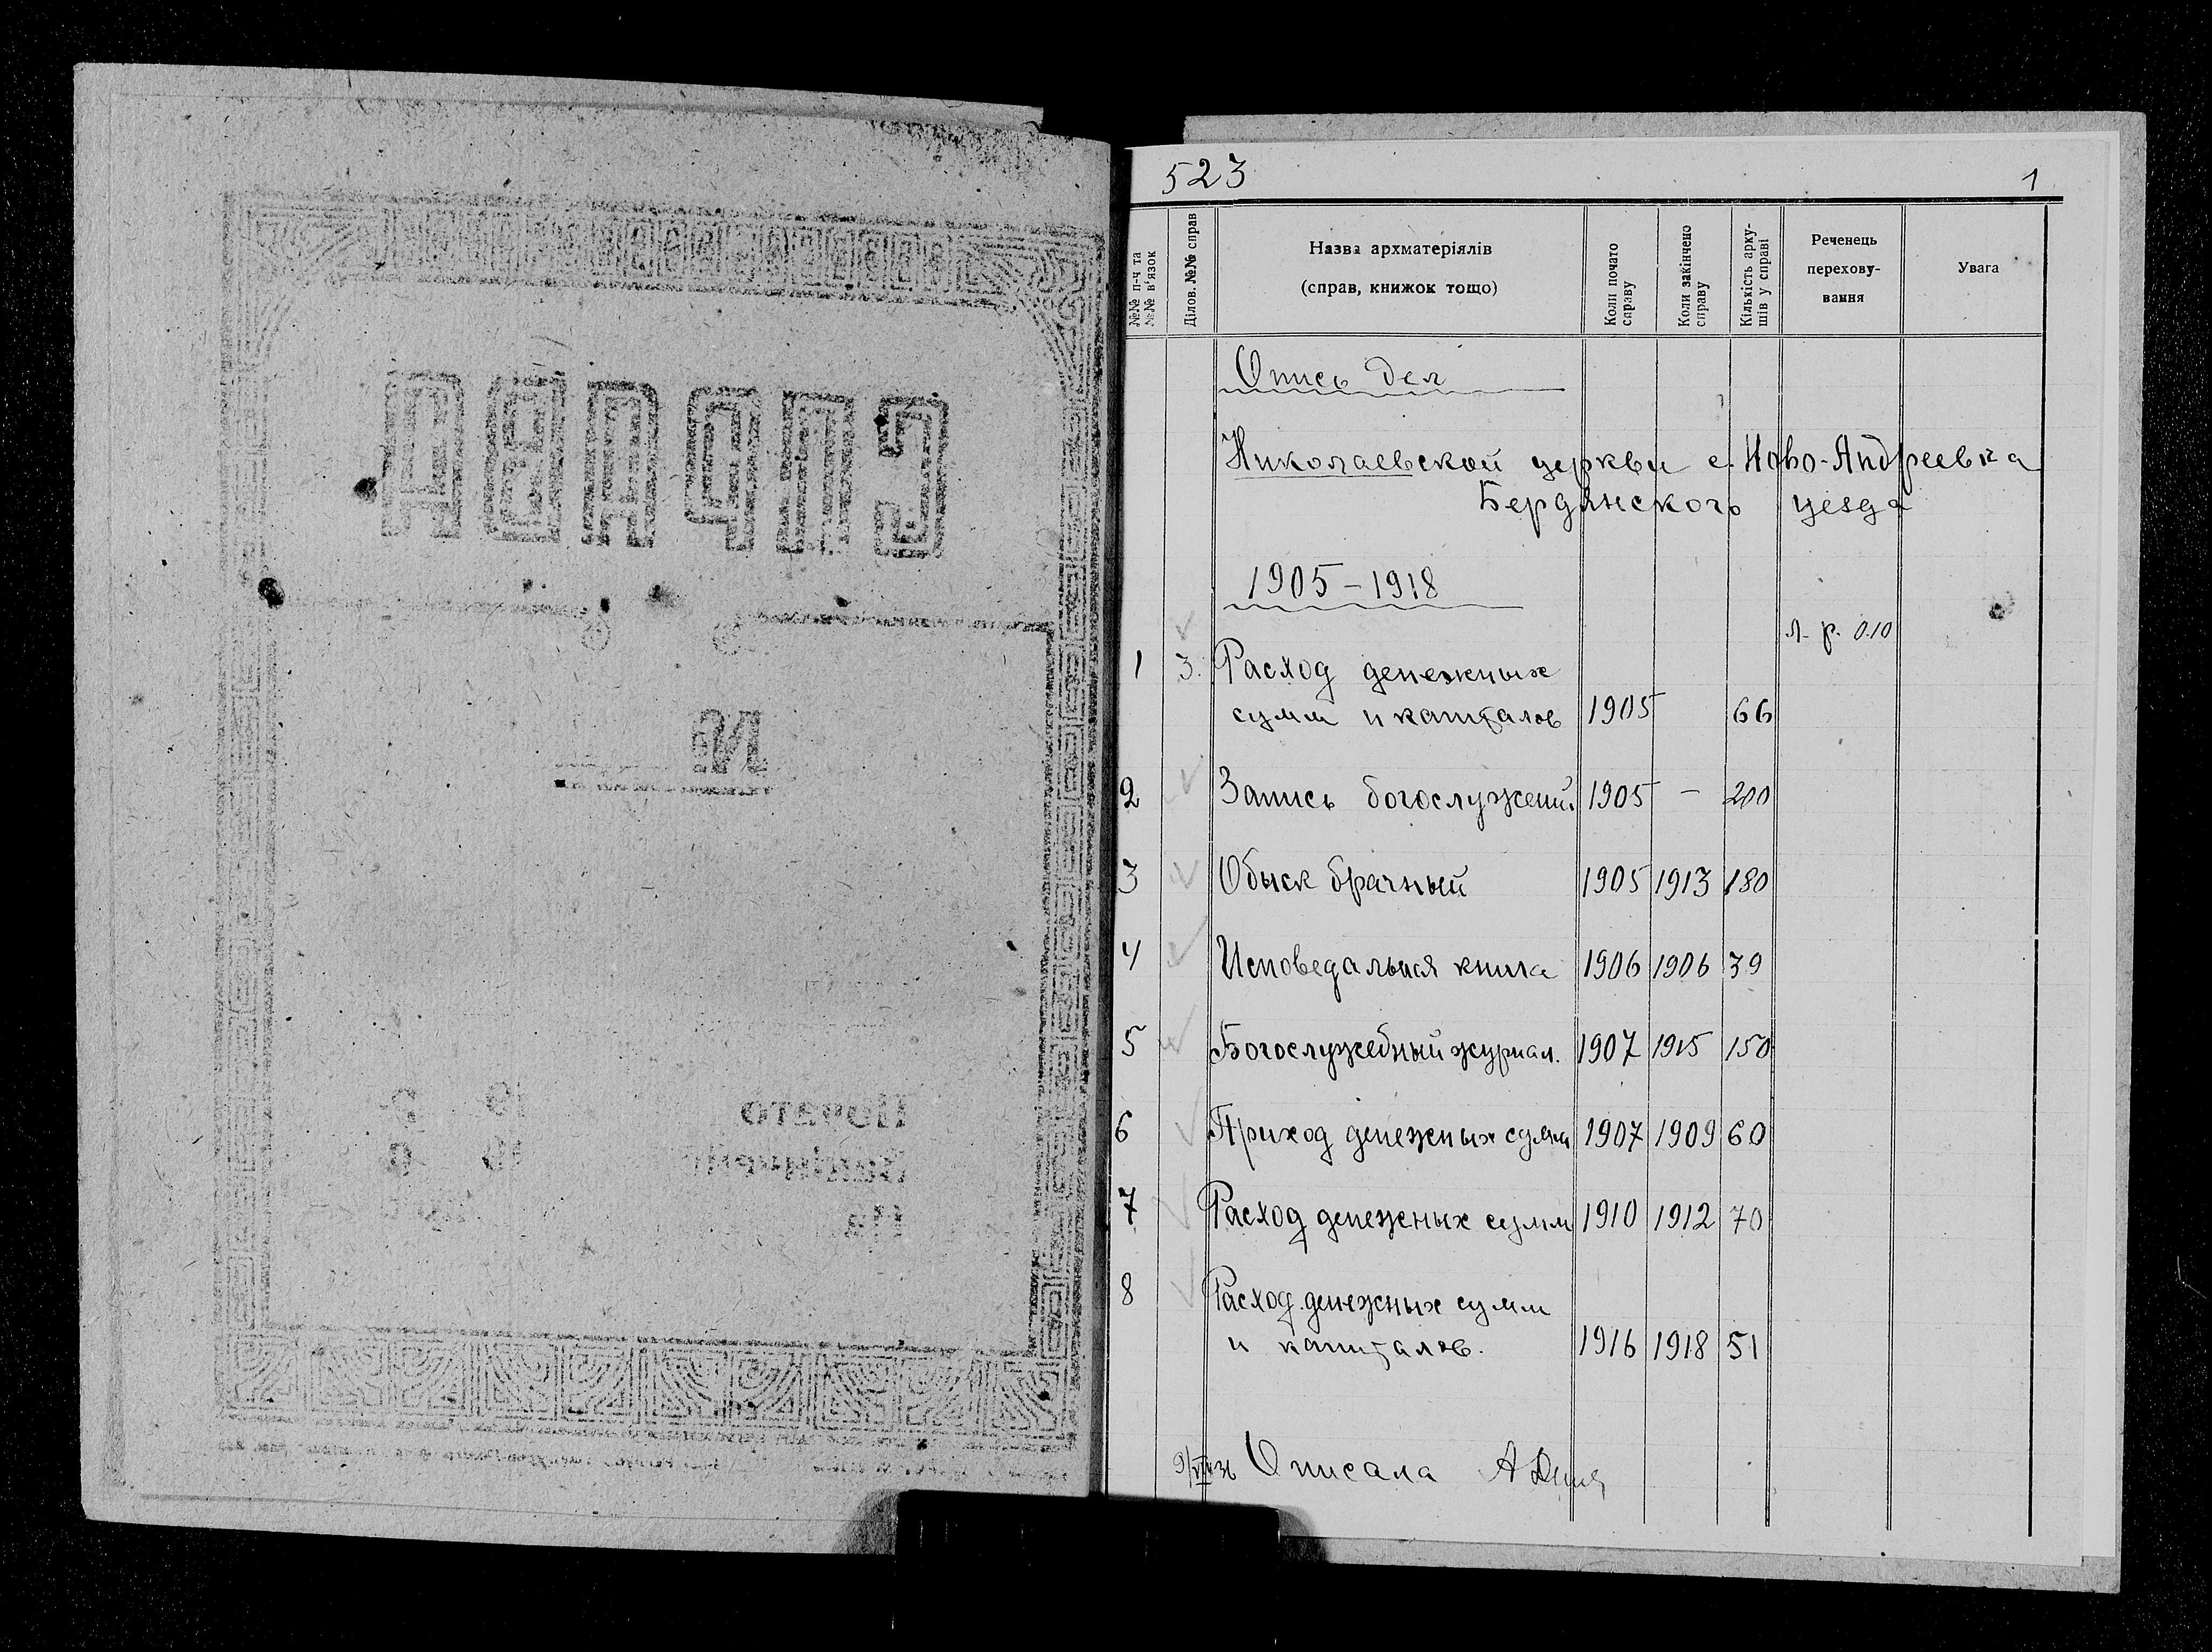 523
1
№№ п-ч та №№ в'язок
Ділов. №№ справ
Назва архматеріялів
(справ, книжок тощо)
Коли почато справу
Коли закінчено справу
Кількість аркушів у справі
Реченець
перехову-
вання
Увага
Опись дел
Николаевской церкви с. Ново-Андреевка
Бердянского уезда
1905-1918
л. р. 0.10
1 3. Расход денежных
сумм и капиталов 1905 66
2 Запись богослужений 1905 - 200
3 Обыск брачный 1905 1913 180
4 Исповедальная книга 1906 1906 39
5 Богослужебный журнал. 1907 1915 150
6 Приход денежных сумм 1907 1909 60
7 Расход денежных сумм 1910 1912 70
8 Расход денежных сумм
и капиталов. 1916 1918 51
Описала